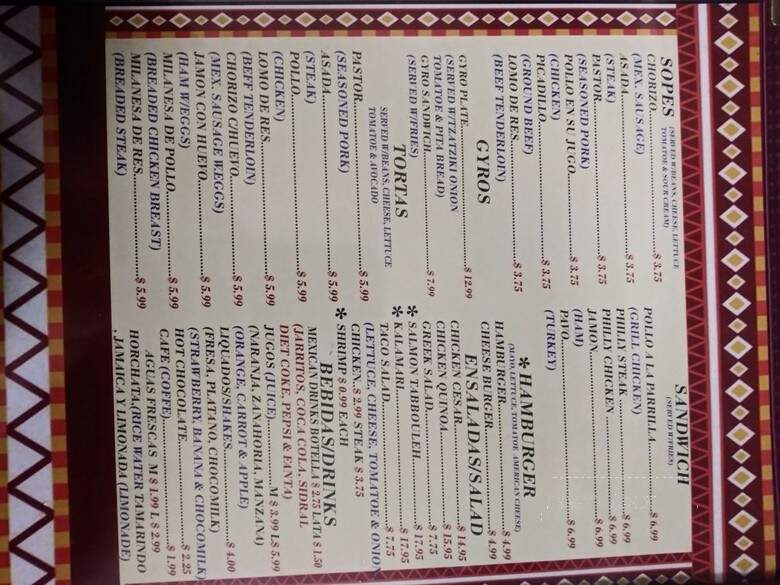 SOPES (SERVED W/BEANS, CHEESE, LETTUCE
TOMATOE & SOUR CREAM)
CHORIZO....$ 3.75
(MEX. SAUSAGE)
ASADA....$ 3.75
(STEAK)
PASTOR....$ 3.75
(SEASONED PORK)
POLLO EN SU JUGO....$ 3.75
(CHICKEN)
PICADILLO....$ 3.75
(GROUND BEEF)
LOMO DE RES....$ 3.75
(BEEF TENDERLOIN)
GYROS
GYRO PLATE....$ 12.99
(SERVED W/TZATZIKI ONION
TOMATOE & PITA BREAD)
GYRO SANDWICH....$ 7.99
(SERVED W/FRIES)
TORTAS
SERVED W/BEANS, CHEESE, LETTUCE
TOMATOE & AVOCADO
PASTOR....$ 5.99
(SEASONED PORK)
ASADA....$ 5.99
(STEAK)
POLLO....$ 5.99
(CHICKEN)
LOMO DE RES....$ 5.99
(BEEF TENDERLOIN)
CHORIZO C/HUEVO....$ 5.99
(MEX. SAUSAGE W.EGGS)
JAMON CON HUEVO....$ 5.99
(HAM W/EGGS)
MILANESA DE POLLO....$ 5.99
(BREADED CHICKEN BREAST)
MILANESA DE RES....$ 5.99
(BREADED STEAK)
SANDWICH
(SERVED W/FRIES)
POLLO A LA PARRILLA....$ 6.99
(GRILL CHICKEN)
PHILLY STEAK....$ 6.99
PHILLY CHICKEN....$ 6.99
JAMON....$ 6.99
(HAM)
PAVO....$ 6.99
(TURKEY)
* HAMBURGER
(MAYO, LETTUCE, TOMATOE AMERICAN CHEESE)
HAMBURGER....$ 4.99
CHEESE BURGER....$ 4.99
ENSALADAS/SALAD
CHICKEN CESAR....$ 14.95
CHICKEN QUINOA....$ 15.95
GREEK SALAD....$ 7.75
* SALMON TABBOULEH....$ 17.95
* KALAMARI....$ 17.95
TACO SALAD....$ 7.75
(LETTUCE, CHEESE, TOMATOE & ONION
CHICKEN..$ 2.99 STEAK $ 3.75
* SHRIMP $ 0.99 EACH
BEBIDAS/DRINKS
MEXICAN DRINKS BOTELLA $ 2.75 LATA $ 1.50
(JARRITOS, COCA COLA, SIDRAL
DIET COKE, PEPSI & FANTA)
JUGOS (JUICE)....M $ 3.99 L$ 5.99
(NARANJA, ZANAHORIA, MANZANA)
(ORANGE, CARROT & APPLE)
LIQUADOS/SHAKES....$ 4.00
(FRESA, PLATANO, CHOCOMILK)
(STRAWBERRY, BANANA & CHOCOMILK)
HOT CHOCOLATE....$ 2.25
CAFE (COFFE)....$ 1.99
AGUAS FRESCAS M $ 1.99 L $ 2.99
HORCHATA,(RICE WATER TAMARINDO
, JAMAICA Y LIMONADA (LIMONADE)